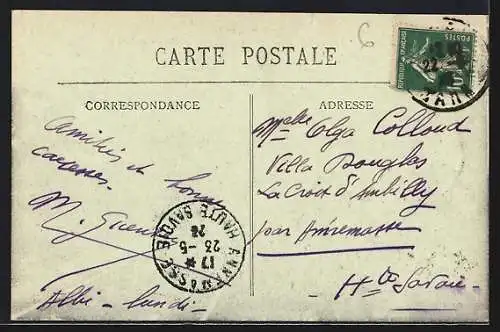 6
CARTE POSTALE
CORRESPONDANCE
ADRESSE
Amitiés et bonnes
caresses.
M.
Albi - lundi -
Melle Olga Colloud
Villa Douglas
La Croix d'Ambilly
par Annemasse
Hte Savoie
ANNEMASSE
17 *
23-5
HAUTE SAVOIE
POSTES
REPUBLIQUE FRANCAISE